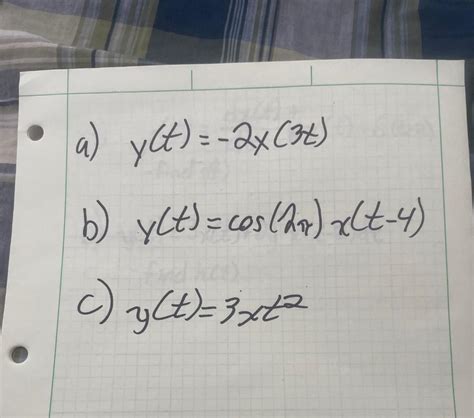 a) y(t)=-2x(3t)
b) y(t)=cos(2π)x(t-4)
c) y(t)=3xt²